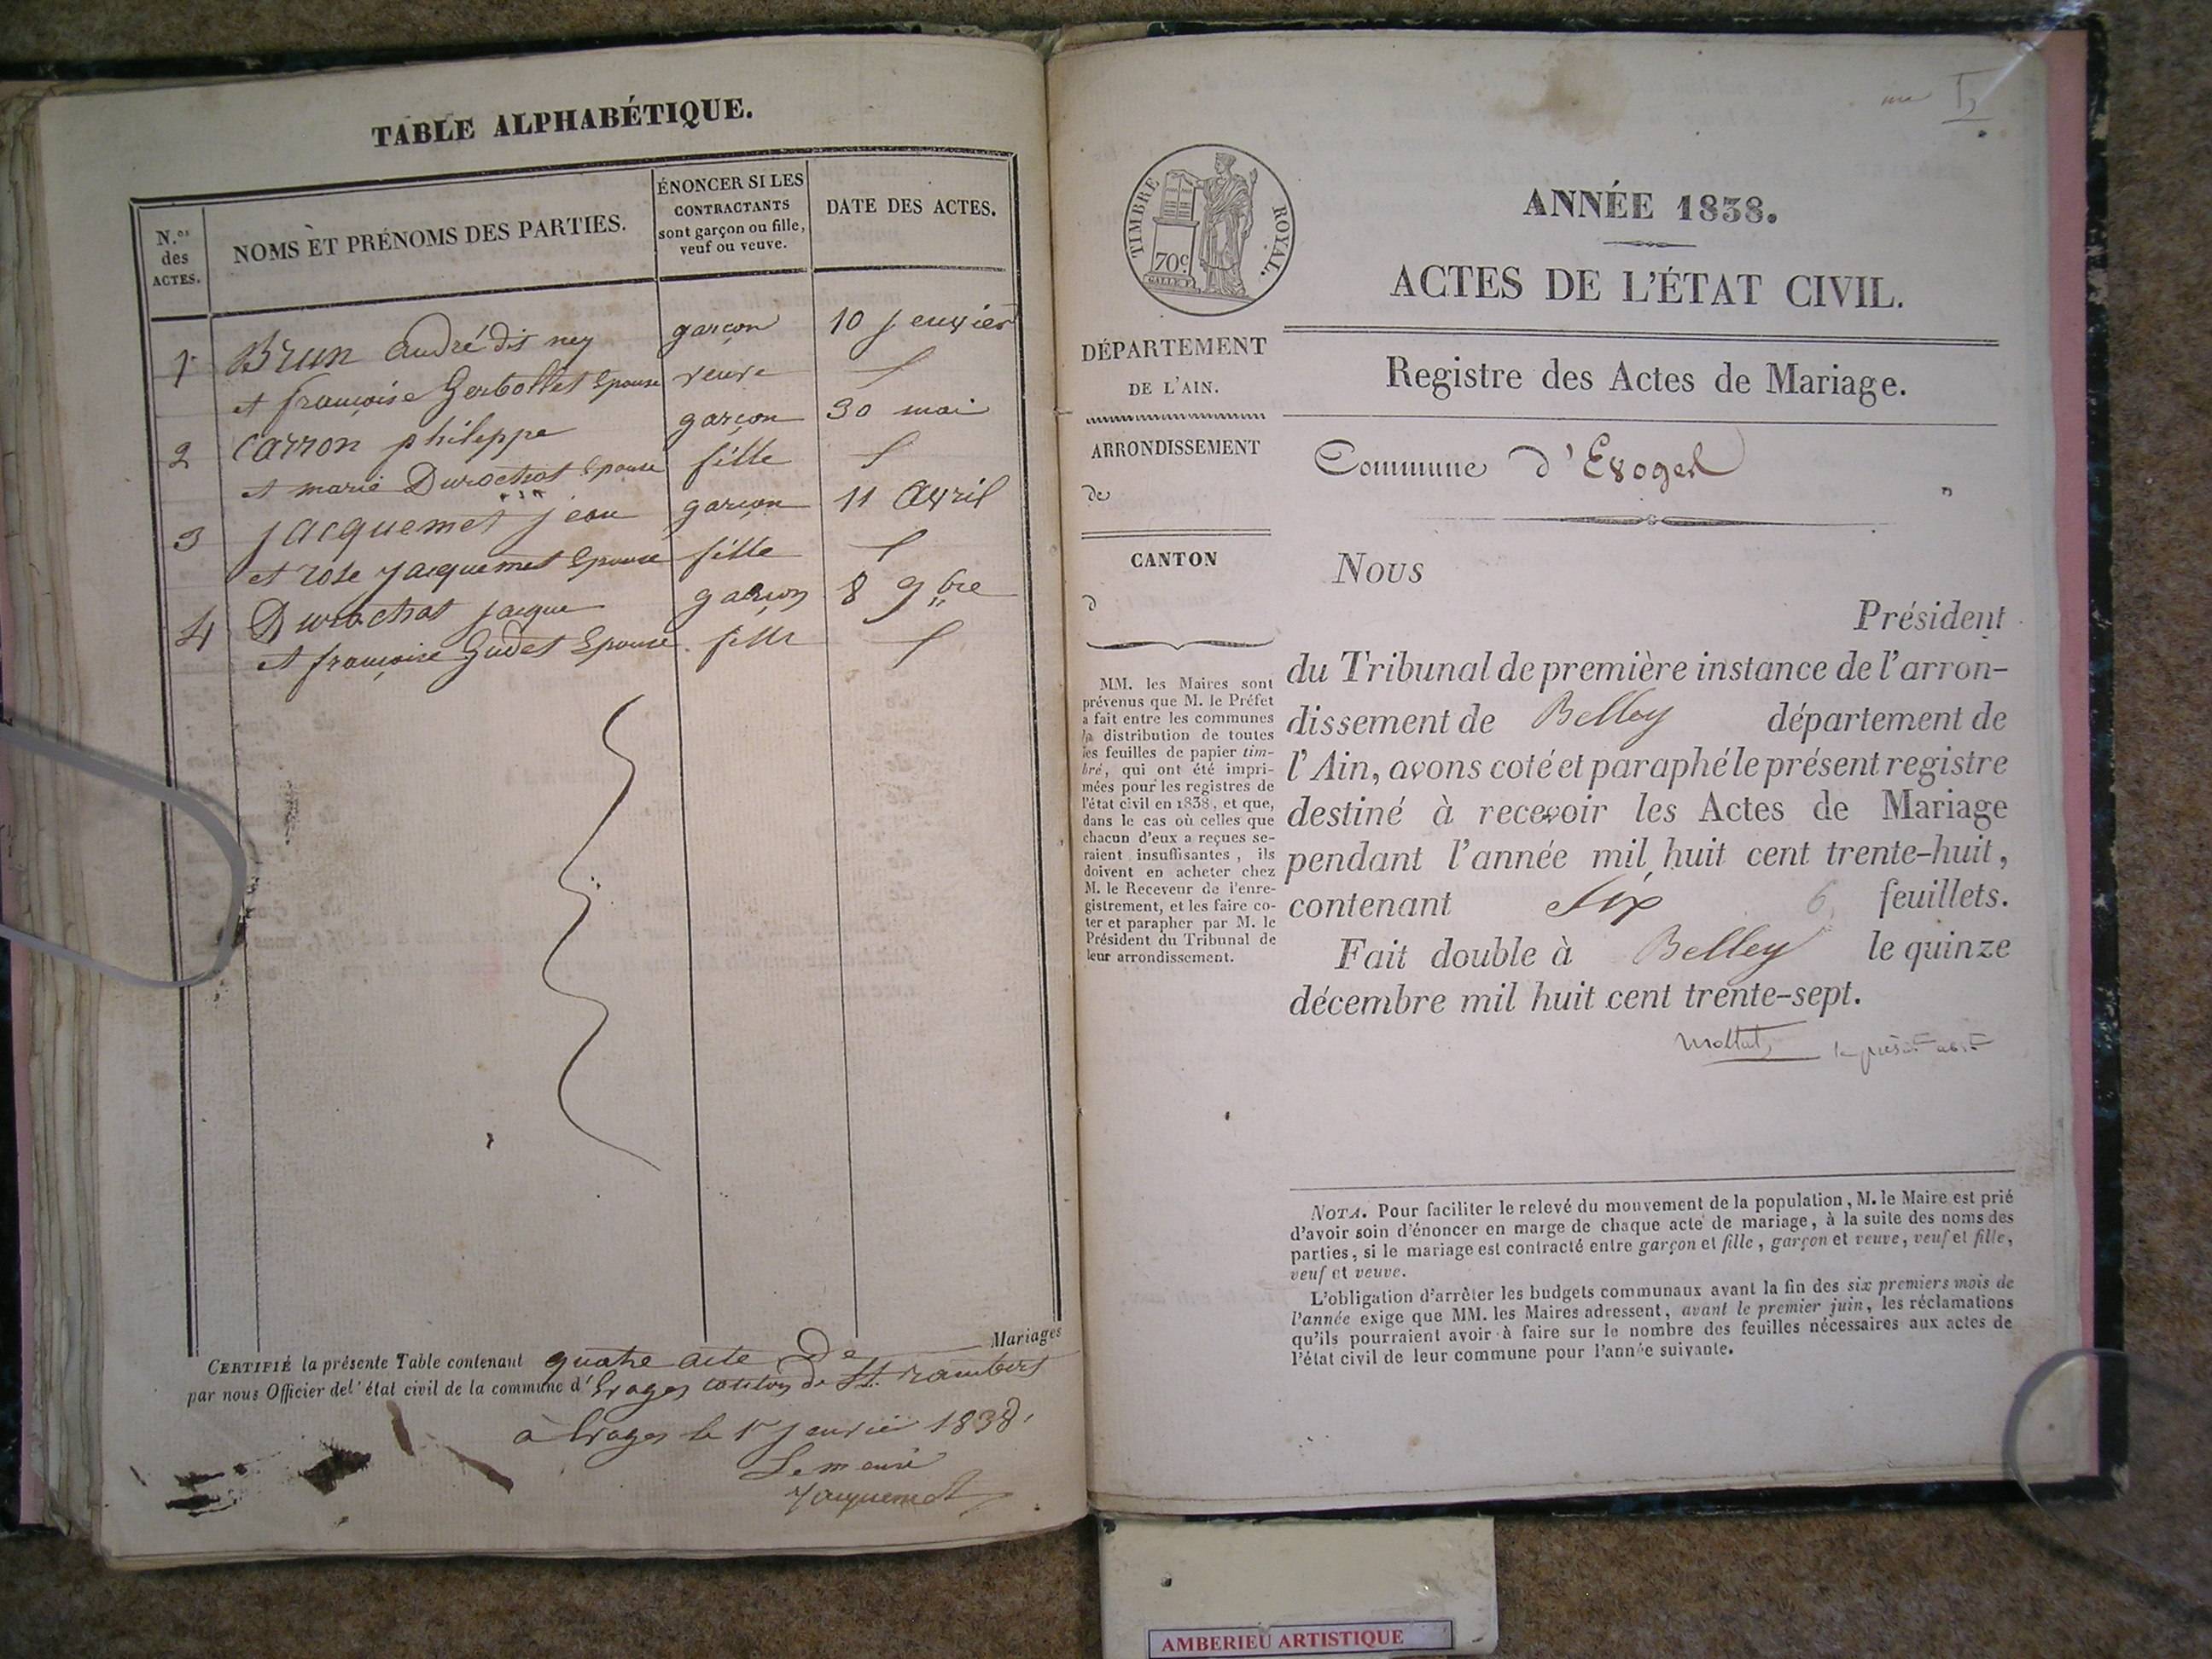 TABLE ALPHABÉTIQUE.
N.os des ACTES.
NOMS ET PRÉNOMS DES PARTIES.
ÉNONCER SI LES
CONTRACTANTS
sont garçon ou fille,
veuf ou veuve.
DATE DES ACTES.
1 Brun André dit ney garçon 10 jenvier
et françoise Gerbollet Epouse veuve
2 Carron philippe garçon 30 mai
et marie Durochat Epouse fille
3 jacquemet jean garçon 11 Avril
et rose jacquemet Epouse fille
4 Durochat jacque garçon 8 9bre
et françoise Gudet Epouse fille
CERTIFIÉ la présente Table contenant quatre acte De Mariages
par nous Officier de l'état civil de la commune d'Evoges canton de St. rambert
à Evoges le 1r jenvié 1838
Le maire
Jacquemet
TIMBRE ROYAL.
70c
ANNÉE 1838.
ACTES DE L'ÉTAT CIVIL.
Registre des Actes de Mariage.
Commune d'Evoges
DÉPARTEMENT
DE L'AIN.
ARRONDISSEMENT
de
CANTON
d
MM. les Maires sont
prévenus que M. le Préfet
a fait entre les communes
la distribution de toutes
les feuilles de papier tim-
bré, qui ont été impri-
mées pour les registres de
l'état civil en 1838, et que,
dans le cas où celles que
chacun d'eux a reçues se-
raient insuffisantes, ils
doivent en acheter chez
M. le Receveur de l'enre-
gistrement, et les faire co-
ter et parapher par M. le
Président du Tribunal de
leur arrondissement.
Nous
Président
du Tribunal de première instance de l'arron-
dissement de Belley département de
l'Ain, avons coté et paraphé le présent registre
destiné à recevoir les Actes de Mariage
pendant l'année mil huit cent trente-huit,
contenant Six 6 feuillets.
Fait double à Belley le quinze
décembre mil huit cent trente-sept.
NOTA. Pour faciliter le relevé du mouvement de la population, M. le Maire est prié
d'avoir soin d'énoncer en marge de chaque acte de mariage, à la suite des noms des
parties, si le mariage est contracté entre garçon et fille, garçon et veuve, veuf et fille,
veuf et veuve.
L'obligation d'arrêter les budgets communaux avant la fin des six premiers mois de
l'année exige que MM. les Maires adressent, avant le premier juin, les réclamations
qu'ils pourraient avoir à faire sur le nombre des feuilles nécessaires aux actes de
l'état civil de leur commune pour l'année suivante.
AMBERIEU ARTISTIQUE